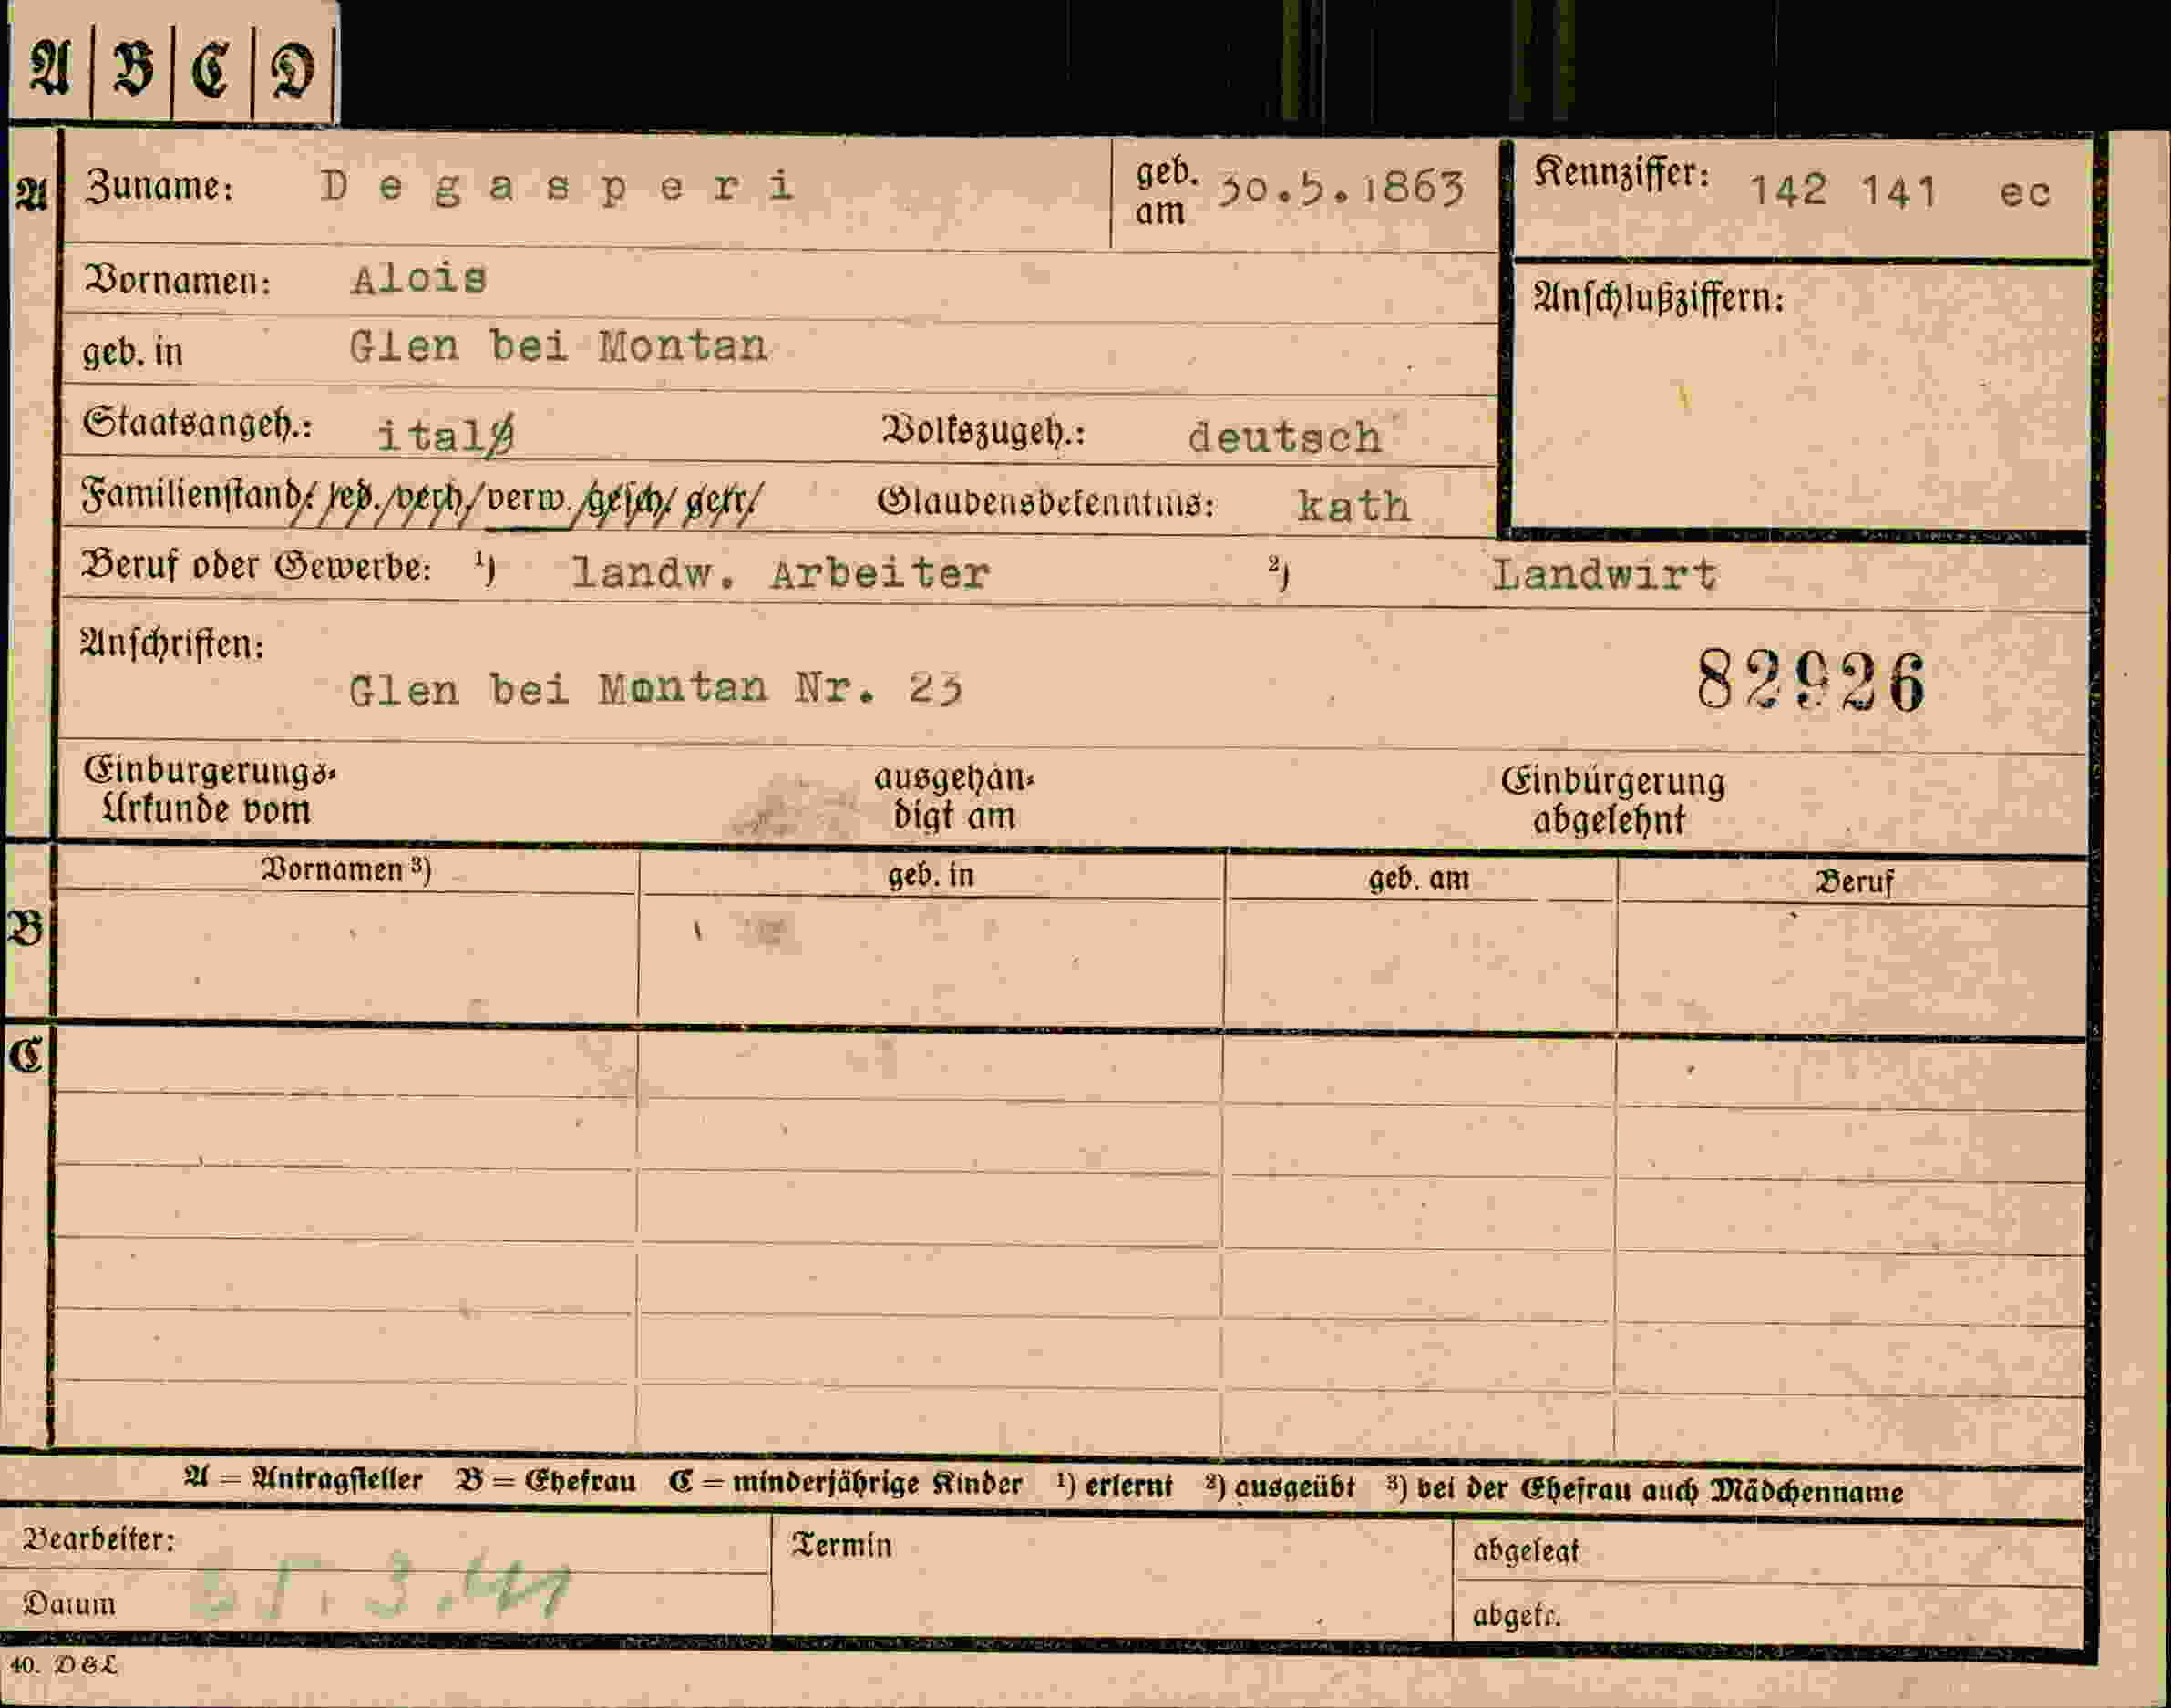 A B C D
A Zuname: Degasperi geb. am 30.5.1863 Kennziffer: 142 141 ec
Vornamen: Alois
Anschlußziffern:
geb. in Glen bei Montan
Staatsangeh.: ital Volkszugeh.: deutsch
Familienstand: led./verh/verw./gesch/ getr/ Glaubensbekenntnis: kath
Beruf oder Gewerbe: ¹) landw. Arbeiter ²) Landwirt
Anschriften:
Glen bei Montan Nr. 23 82926
Einbürgerungs- ausgehän- Einbürgerung
Urkunde vom digt am abgelehnt
Vornamen ³) geb. in geb. am Beruf
B
C
A = Antragsteller B = Ehefrau C = minderjährige Kinder ¹) erlernt ²) ausgeübt ³) bei der Ehefrau auch Mädchenname
Bearbeiter: Termin abgelegt
Datum abgetr.
40. D&L